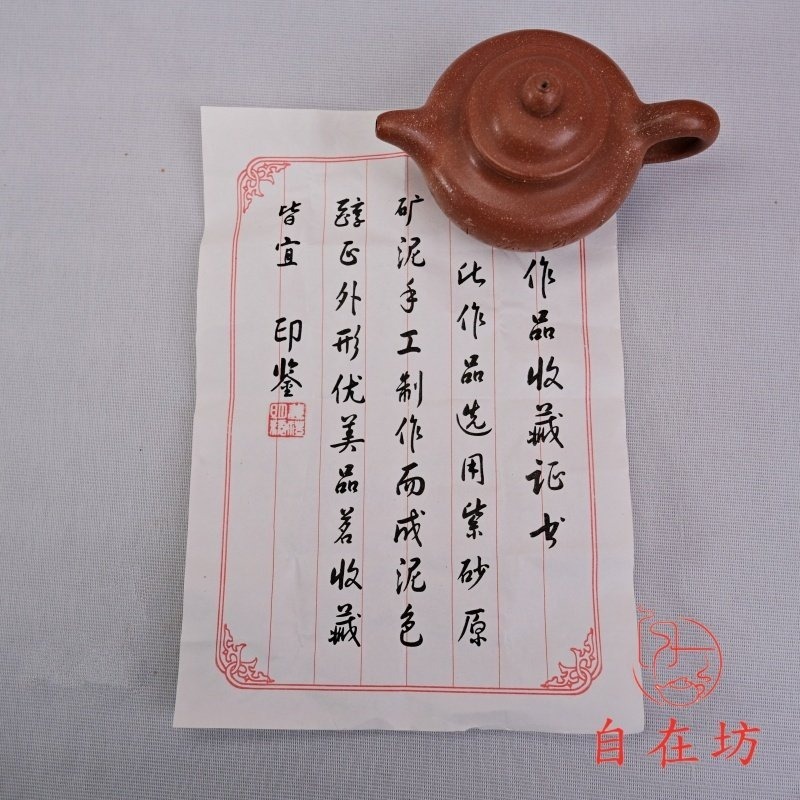 作品收藏证书
此作品选用紫砂原
矿泥手工制作而成泥色
醇正外形优美品茗收藏
皆宜 印鉴
自在坊